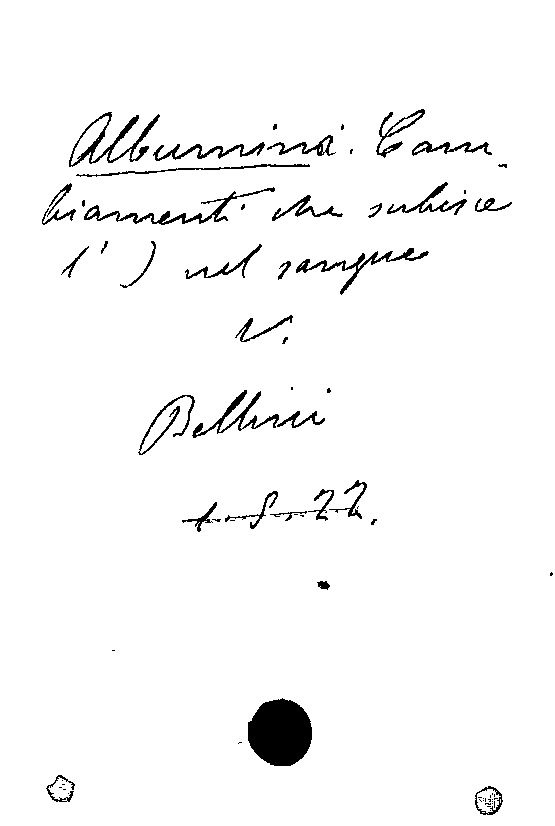 Albumina. Cam-
biamenti che subisce
l') nel sangue
V.
Bellini
1.8.22.